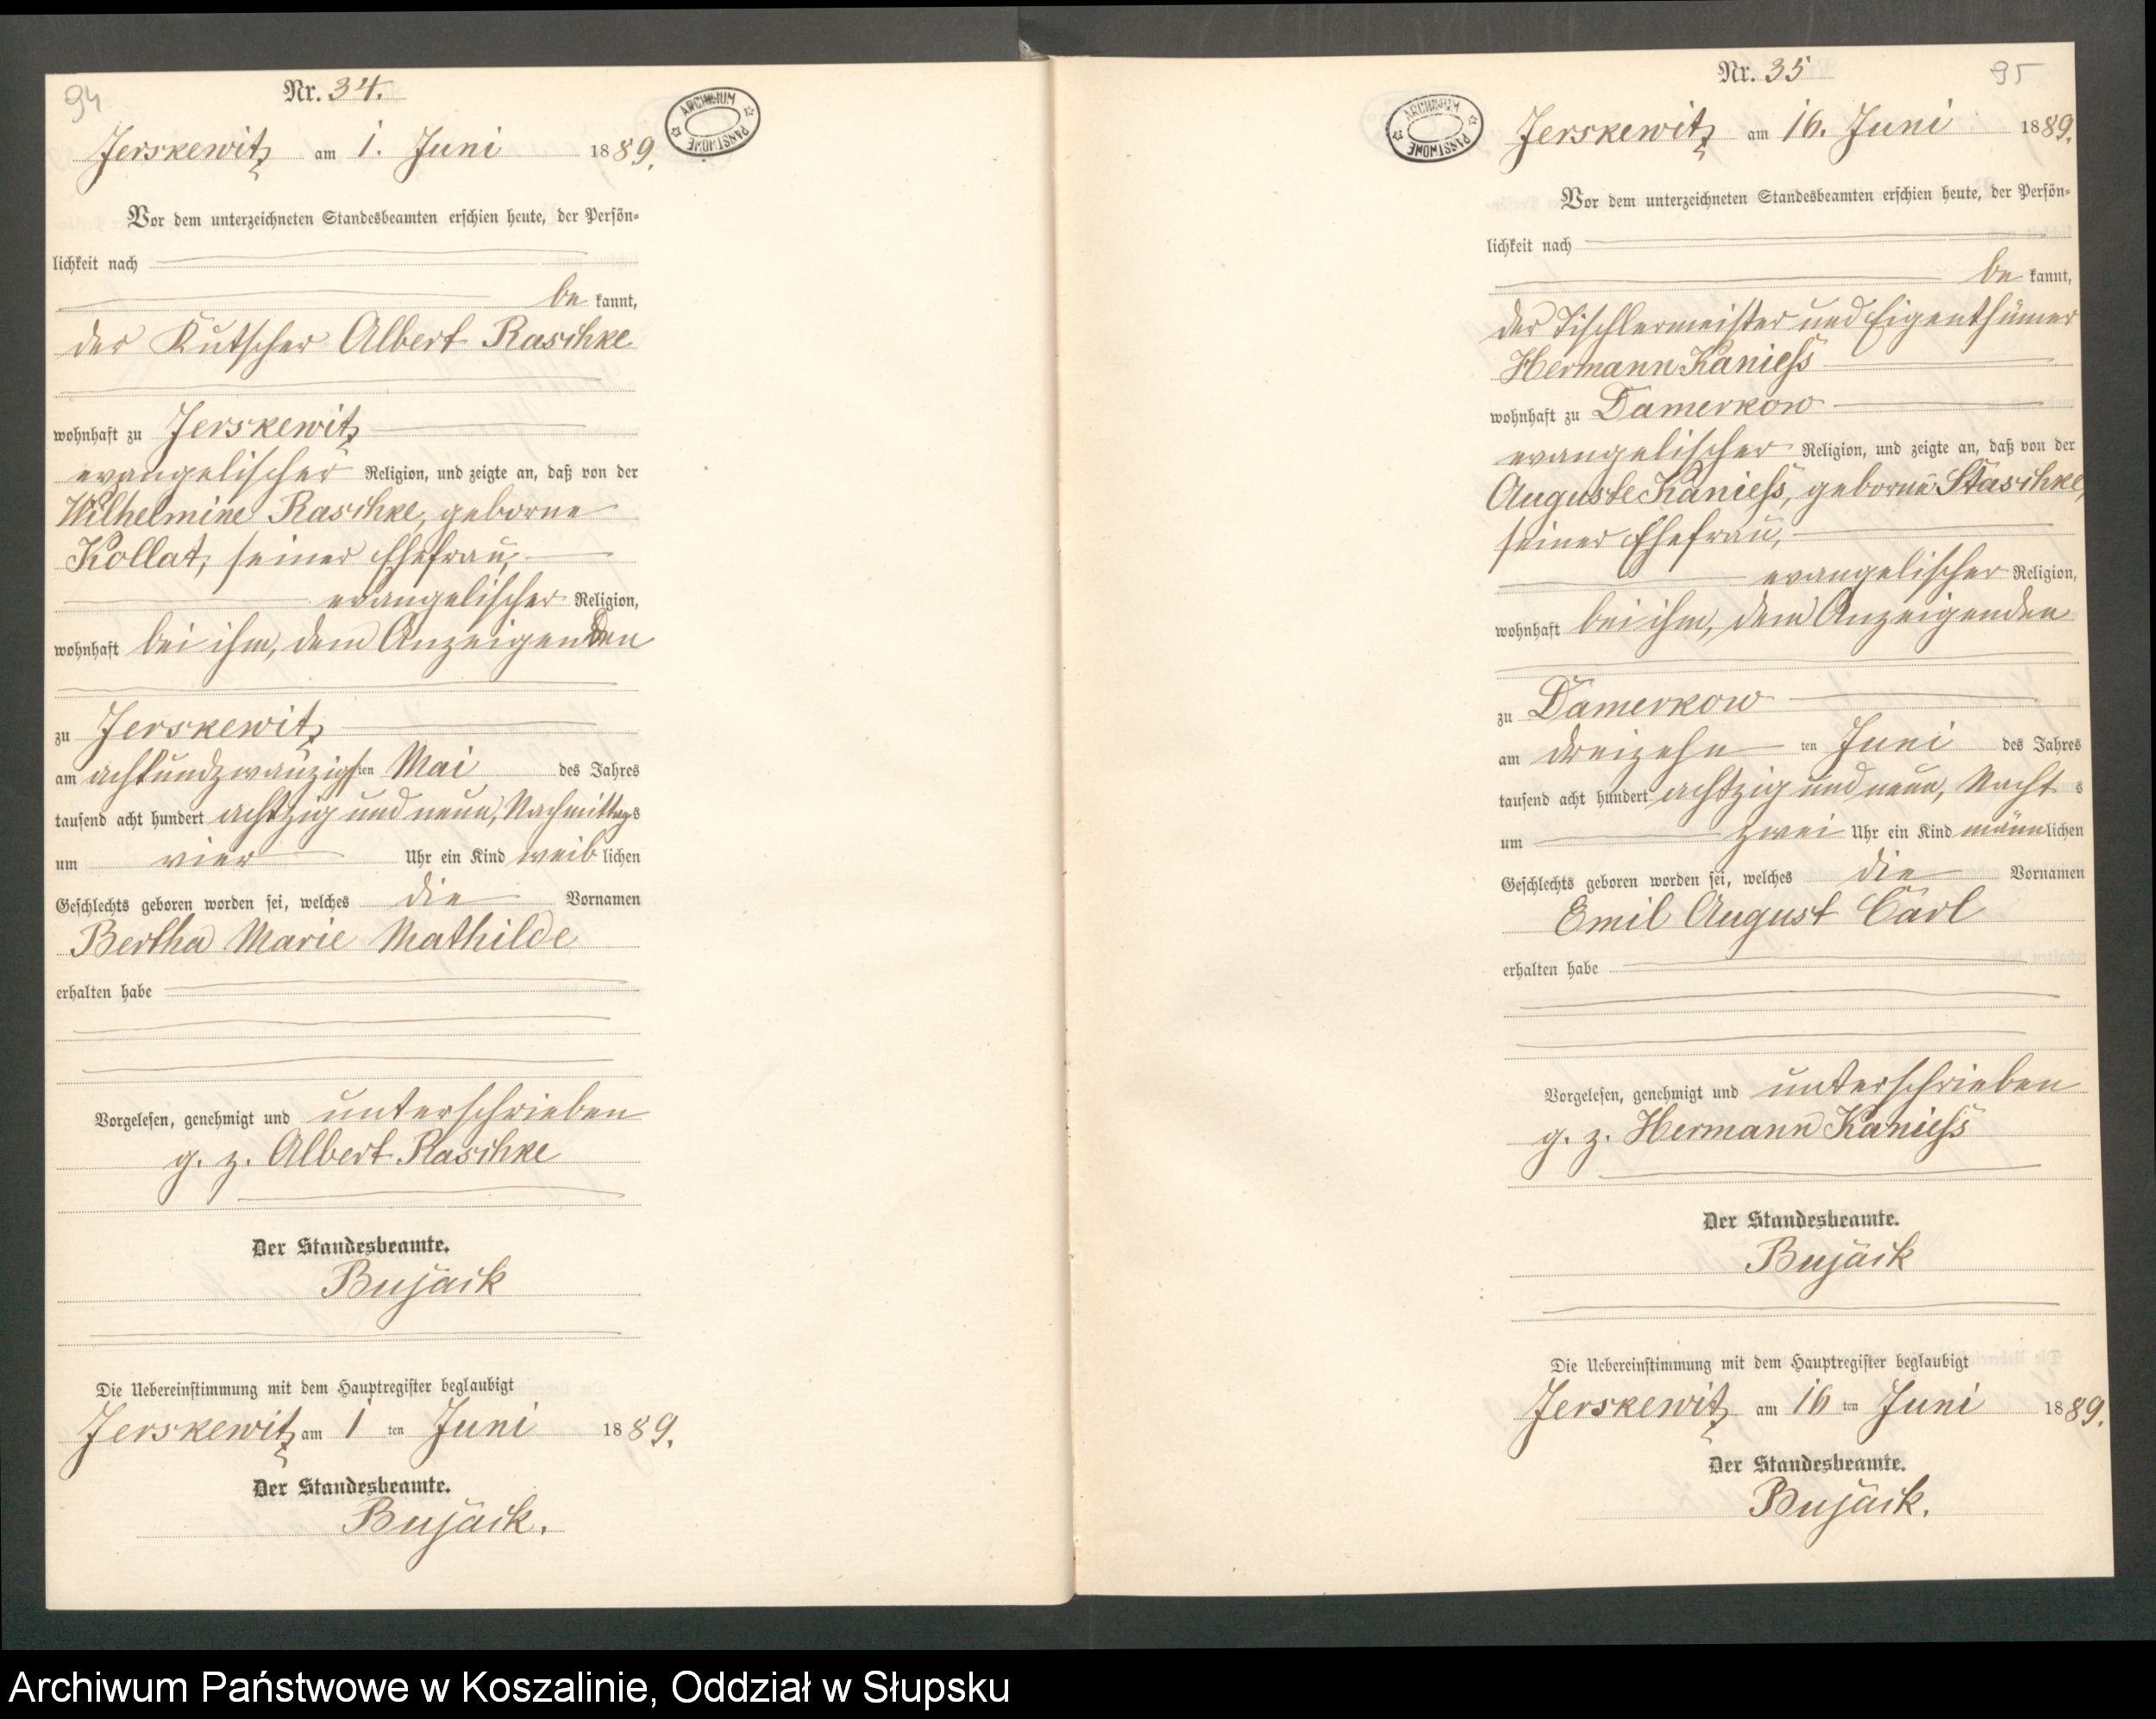 94
Nr. 34.
ARCHIWUM PAŃSTWOWE
Jerskewitz am 1. Juni 1889.
Vor dem unterzeichneten Standesbeamten erschien heute, der Persön-
lichkeit nach
be kannt,
der Kutscher Albert Raschke
wohnhaft zu Jerskewitz
evangelischer Religion, und zeigte an, daß von der
Wilhelmine Raschke, geborne
Kollat, seiner Ehefrau,
evangelischer Religion,
wohnhaft bei ihm, dem Anzeigenden
zu Jerskewitz
am achtundzwanzigsten Mai des Jahres
tausend acht hundert achtzig und neun, Nachmittags
um vier Uhr ein Kind weiblichen
Geschlechts geboren worden sei, welches die Vornamen
Bertha Marie Mathilde
erhalten habe
Vorgelesen, genehmigt und unterschrieben
g. z. Albert Raschke
Der Standesbeamte.
Bujack
Die Uebereinstimmung mit dem Hauptregister beglaubigt
Jerskewitz am 1 ten Juni 1889.
Der Standesbeamte.
Bujack.
Nr. 35
95
ARCHIWUM PAŃSTWOWE
Jerskewitz am 16. Juni 1889.
Vor dem unterzeichneten Standesbeamten erschien heute, der Persön-
lichkeit nach
be kannt,
der Tischlermeister und Eigenthümer
Hermann Kaniess
wohnhaft zu Damerkow
evangelischer Religion, und zeigte an, daß von der
Auguste Kaniess, geborne Staschke,
seiner Ehefrau,
evangelischer Religion,
wohnhaft bei ihm, dem Anzeigenden
zu Damerkow
am dreizehn ten Juni des Jahres
tausend acht hundert achtzig und neun, Nachts
um zwei Uhr ein Kind männlichen
Geschlechts geboren worden sei, welches die Vornamen
Emil August Carl
erhalten habe
Vorgelesen, genehmigt und unterschrieben
g. z. Hermann Kaniess
Der Standesbeamte.
Bujack
Die Uebereinstimmung mit dem Hauptregister beglaubigt
Jerskewitz am 16 ten Juni 1889.
Der Standesbeamte.
Bujack.
Archiwum Państwowe w Koszalinie, Oddział w Słupsku